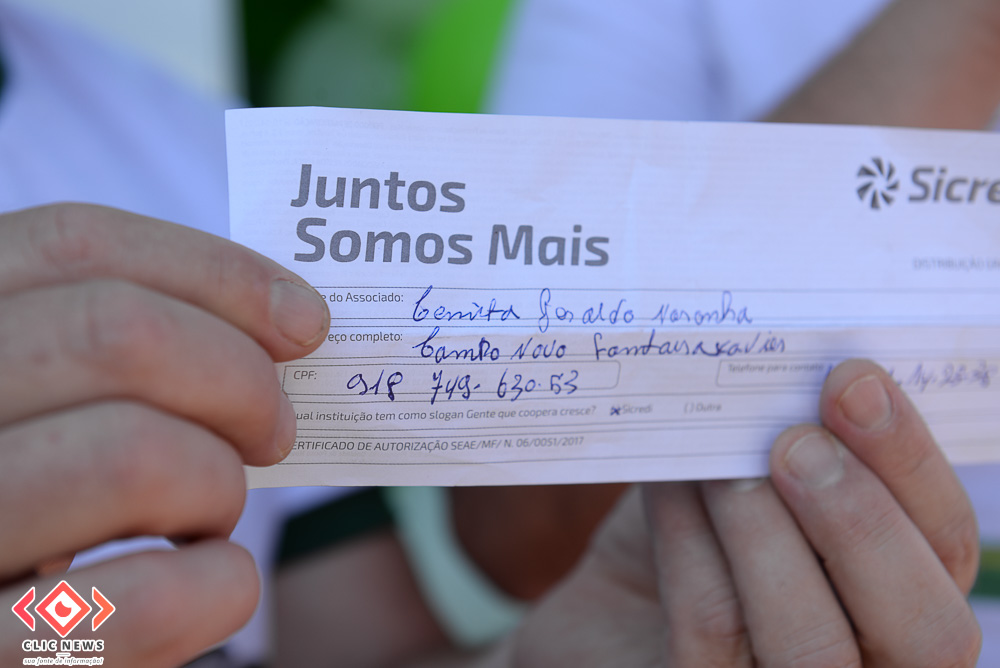 Juntos
Somos Mais
Sicre
DISTRIBUIÇÃO
e do Associado: Geraldo Noronha
reço completo: Campo Novo Fontoura Xavier
CPF: 918 749. 630.53
Telefone para contato
ual instituição tem como slogan Gente que coopera cresce? (x) Sicredi ( ) Outra
ERTIFICADO DE AUTORIZAÇÃO SEAE/MF/ N. 06/0051/2017
CLIC NEWS
sua fonte de informação!